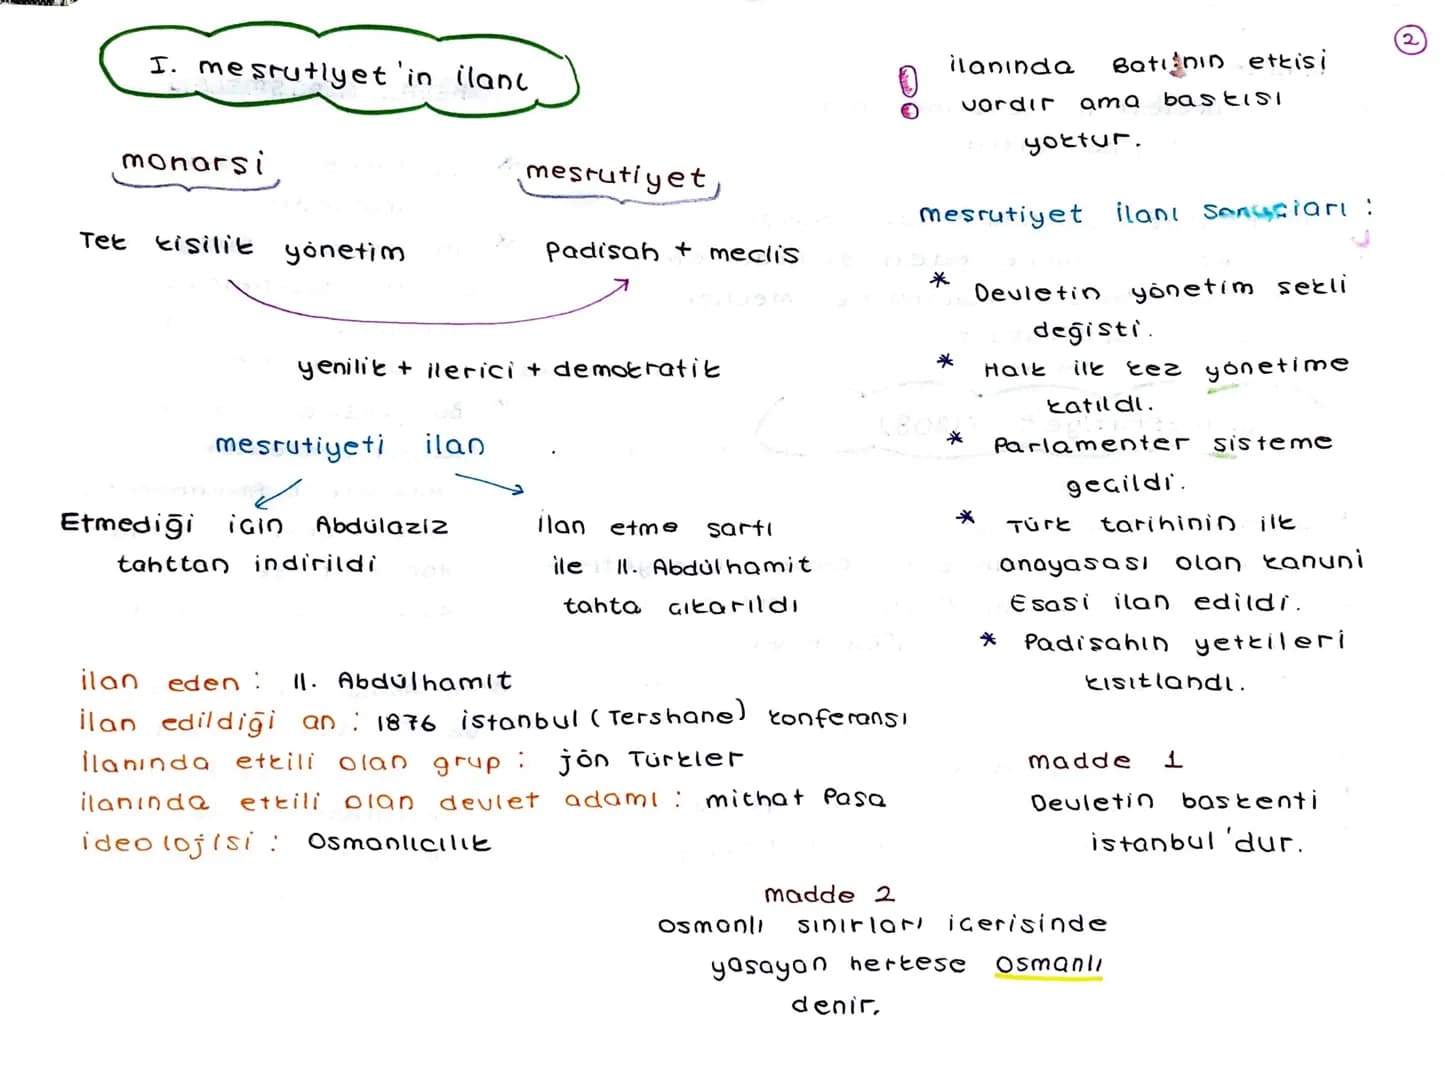 2
I. mesrutiyet'in ilanı
monarsi
mesrutiyet
Tek kisilik yönetim
Padisah + meclis
yenilik + ilerici + demokratik
mesrutiyeti ilan
Etmediği icin Abdülaziz
tahttan indirildi
ilan etme sartı
ile II. Abdülhamit
tahta cıkarıldı
ilan eden : II. Abdülhamit
ilan edildiği an : 1876 istanbul (Tershane) konferansı
ilanında etkili olan grup : jön Türkler
ilanında etkili olan devlet adamı : mithat Pasa
ideolojisi : Osmanlıcılık
ilanında Batı'nın etkisi
vardır ama baskısı
yoktur.
mesrutiyet ilanı sonuçları :
* Devletin yönetim sekli
değisti.
* Halk ilk kez yönetime
katıldı.
* Parlamenter sisteme
gecildi.
* Türk tarihinin ilk
anayasası olan kanuni
Esasi ilan edildi.
* Padisahın yetkileri
kısıtlandı.
madde 1
Devletin baskenti
istanbul'dur.
madde 2
osmanlı sınırları icerisinde
yasayan herkese osmanlı
denir.